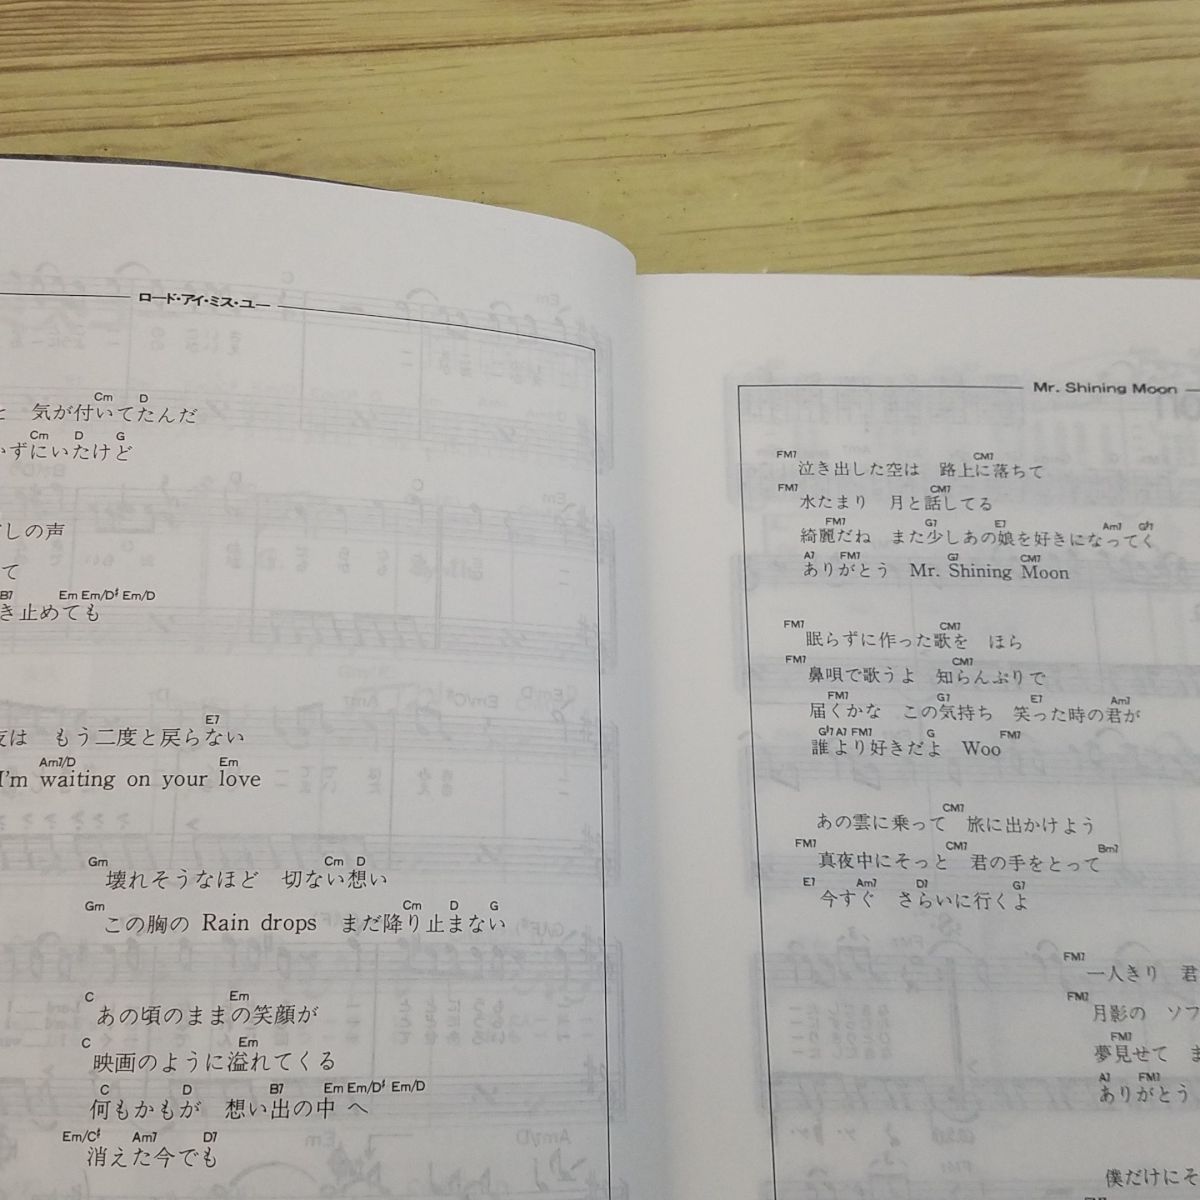 ロード・アイ・ミス・ユー
Cm D
と 気が付いてたんだ
Cm D G
いずにいたけど
しの声
て
B7 Em Em/D♯ Em/D
き止めても
E7
夜は もう二度と戻らない
Am7/D Em
I'm waiting on your love
Gm Cm D
壊れそうなほど 切ない想い
Gm Cm D G
この胸の Rain drops まだ降り止まない
C Em
あの頃のままの笑顔が
C Em
映画のように溢れてくる
C D B7 Em Em/D♯ Em/D
何もかもが 想い出の中へ
Em/C♯ Am7 D7
消えた今でも
Mr. Shining Moon
FM7 CM7
泣き出した空は 路上に落ちて
FM7 CM7
水たまり 月と話してる
FM7 G7 E7 Am7 G♭7
綺麗だね また少しあの娘を好きになってく
A7 FM7 G7 CM7
ありがとう Mr. Shining Moon
FM7 CM7
眠らずに作った歌を ほら
FM7 CM7
鼻唄で歌うよ 知らんぷりで
FM7 G7 E7 Am7
届くかな この気持ち 笑った時の君が
G♭7 A7 FM7 G FM7
誰より好きだよ Woo
CM7
あの雲に乗って 旅に出かけよう
FM7 CM7 Bm7
真夜中にそっと 君の手をとって
E7 Am7 D7 G7
今すぐ さらいに行くよ
FM7
一人きり 君
FM7
月影の ソフ
FM7
夢見せて ま
A7 FM7
ありがとう
僕だけにそ
FM7